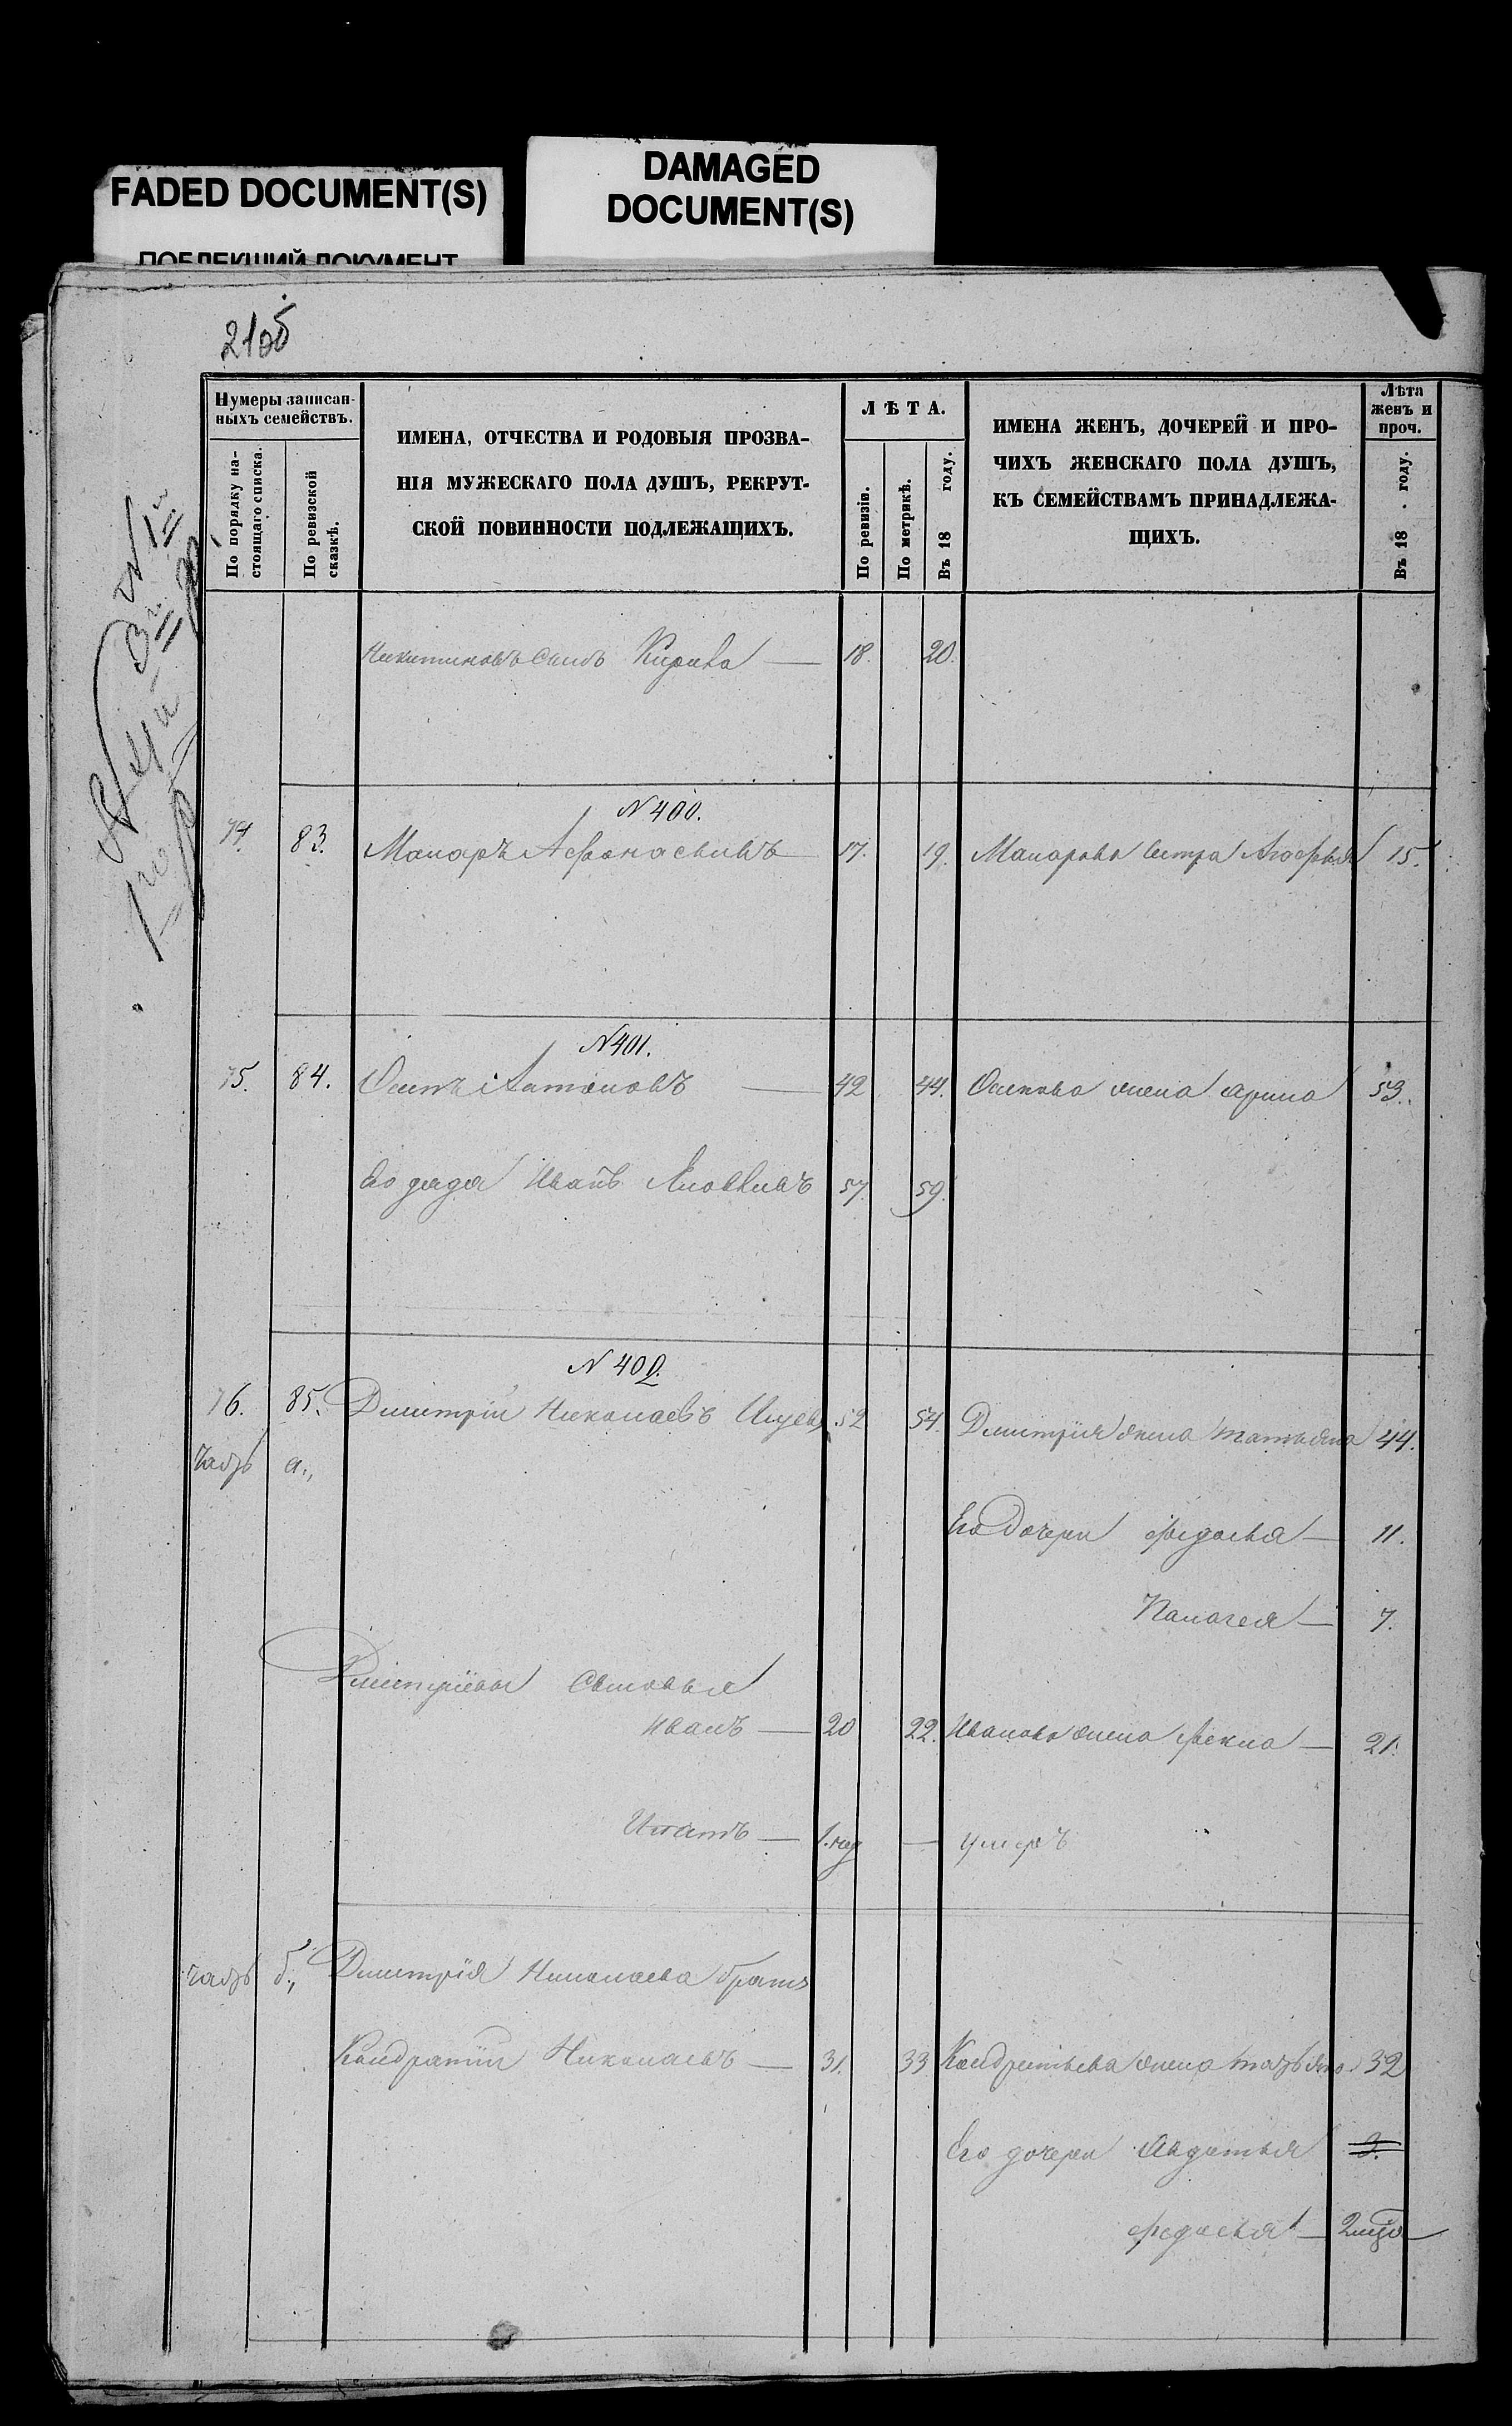 FADED DOCUMENT(S)
ПОБЛЕКШИЙ ДОКУМЕНТ
DAMAGED
DOCUMENT(S)
21об
Нумеры записан-
ныхъ семействъ.
По порядку на-
стоящаго списка.
По ревизской
сказкѣ.
ИМЕНА, ОТЧЕСТВА И РОДОВЫЯ ПРОЗВА-
НІЯ МУЖЕСКАГО ПОЛА ДУШЪ, РЕКРУТ-
СКОЙ ПОВИННОСТИ ПОДЛЕЖАЩИХЪ.
ЛѢТА.
По ревизіи.
По метрикѣ.
Въ 18 году.
ИМЕНА ЖЕНЪ, ДОЧЕРЕЙ И ПРО-
ЧИХЪ ЖЕНСКАГО ПОЛА ДУШЪ,
КЪ СЕМЕЙСТВАМЪ ПРИНАДЛЕЖА-
ЩИХЪ.
Лѣта
женъ и
проч.
Въ 18 . году.
Никитиновъ сынъ 18. 20.
N 400.
74. 83. Макаръ Афонасьивъ 17. 19. Макарова сестра Агафья 15.
N 401.
75. 84. Осипъ Антоновъ — 42 44. Осипова жена Арина 53.
Его дядя Иванъ 57. 59.
N 402.
76. 85. Дмитрій Николаевъ 52 54. Дмитрія жена Татьяна 44.
часть а.,
Его дочери Федосья — 11.
Палагея — 7.
Дмитріевы сыновья
Иванъ — 20 22. Иванова жена Фекла — 21.
Игнатъ — 1. год — умеръ
часть б., Дмитрія Николаева братъ
Кондратій Николаевъ — 31. 33 Кондратьева жена Татьяна 32
Его дочери Авдотья 3.
Федосья —